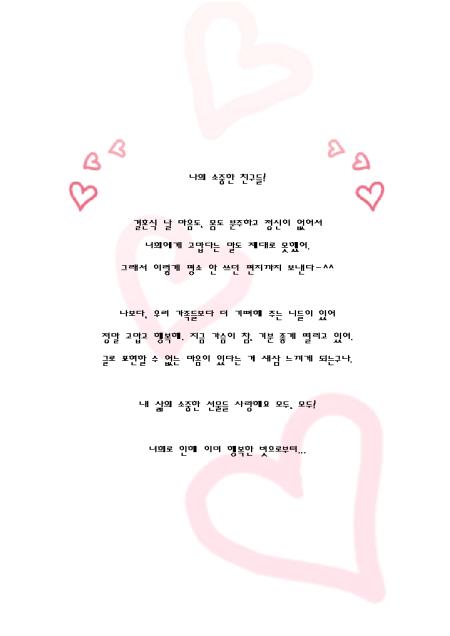 나의 소중한 친구들!
결혼식 날 마음도, 몸도 분주하고 정신이 없어서
너희에게 고맙다는 말도 제대로 못했어.
그래서 이렇게 평소 안 쓰던 편지까지 보낸다-^^
나보다, 우리 가족들보다 더 기뻐해 주는 니들이 있어
정말 고맙고 행복해. 지금 가슴이 참, 기분 좋게 떨리고 있어.
글로 표현할 수 없는 마음이 있다는 게 새삼 느끼게 되는구나.
내 삶의 소중한 선물들 사랑해요 모두, 모두!
너희로 인해 이미 행복한 벗으로부터...